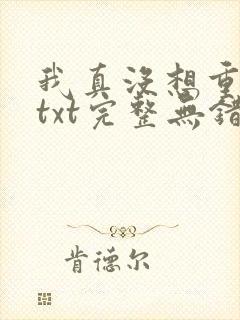 我真没想重
txt完整無錯
肯德尔